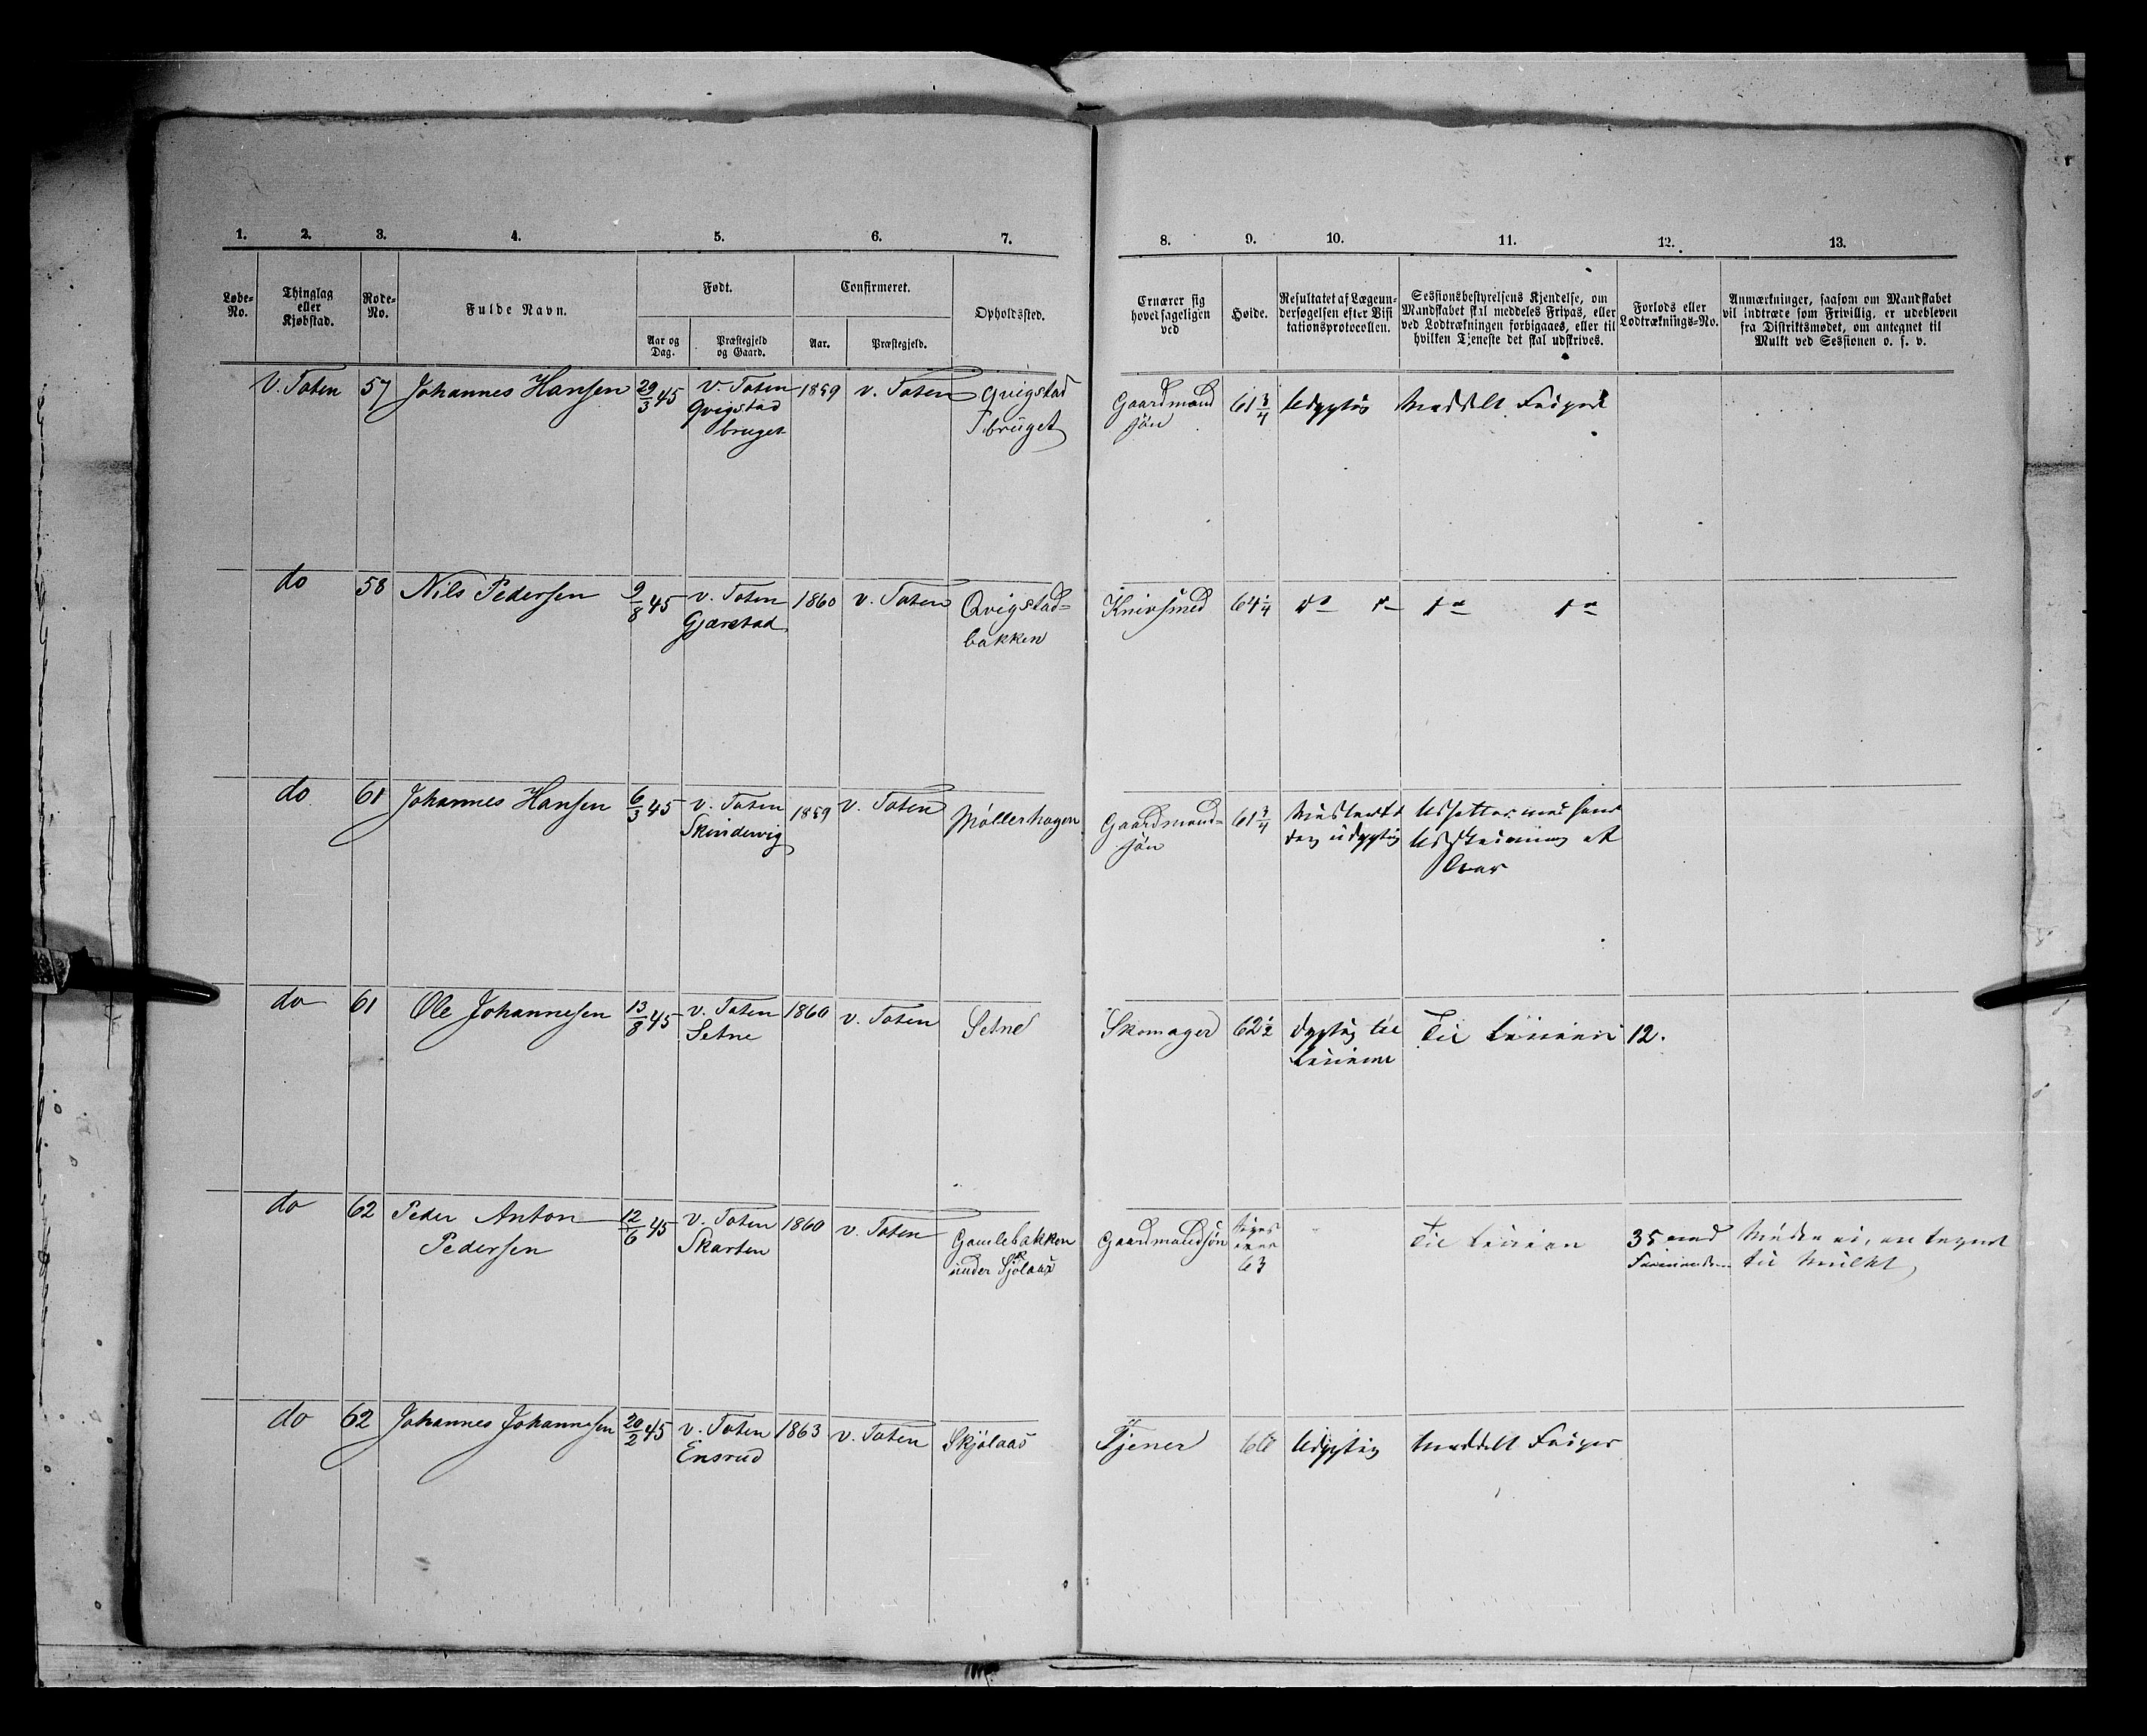 1. 2. 3. 4. 5. 6. 7. 8. 9. 10. 11. 12. 13.
Løbe-No.
Thinglag eller Kjøbstad.
Rode-No.
Fulde Navn.
Født.
Aar og Dag.
Præstegjeld og Gaard.
Confirmeret.
Aar.
Præstegjeld.
Opholdssted.
Ernærer sig hovedsageligen ved
Høide.
Resultatet af Lægeundersøgelsen efter Visitationsprotocollen.
Sessionsbestyrelsens Kjendelse, om Mandskabet skal meddeles Fripas, eller ved Lodtrækningen forbigaaes, eller til hvilken Tjeneste det skal udskrives.
Forlods eller Lodtræknings-No.
Anmærkninger, saasom om Mandskabet vil indtræde som Frivillig, er udebleven fra Distriktsmødet, om antegnet til Mulkt ved Sessionen o. s. v.
V. Toten 57 Johannes Hansen 29/3 45 V. Toten 1859 v. Toten Qvigstad Gaardmand 61 3/4 Udygtig Meddelt Fripas
Qvigstad bruget søn
bruget
do 58 Nils Pedersen 9/8 45 v. Toten 1860 v. Toten Qvigstad= Knivsmed 64 1/4 do do do do
Gjærstad bakken
do 61 Johannes Hansen 6/3 45 v. Toten 1859 v. Toten Møllerhagen Gaardmand= 61 3/4 Udsættes med hans
Skindervig søn dag udygtig Udskrivning et
Aar
do 61 Ole Johannesen 13/8 45 v. Toten 1860 v. Toten Setne Skomager 62 1/2 dygtig til Til Linien 12.
Setne Linien
do 62 Peder Anton 12/6 45 v. Toten 1860 v. Toten Gamlebakken Gaardmandsøn Til Linien 35 Mødte ei, antegnet
Pedersen Skarten under Skjølaas 63 til Mulkt
do 62 Johannes Johannesen 20/2 45 v. Toten 1863 v. Toten Skjølaas Tjener Udygtig Meddelt Fripas
Ensrud